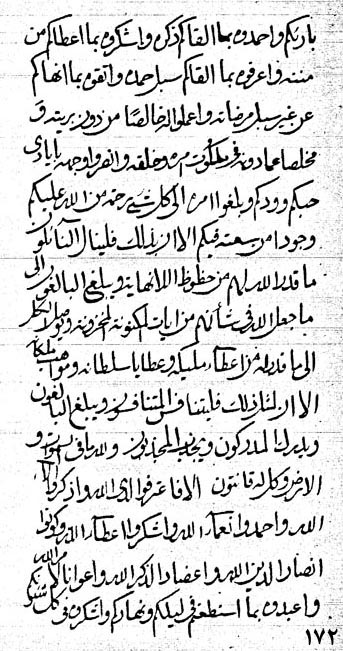 باريكم واحمدوه بما القاكم ذكره واشكروه بما اعطاكم من
مننه واعرفوه بما القاكم سبل حمده واتقوه بما انهاكم
عن غير سبل مرضاته واعملوا له خالصًا من دون بريته و
مخلصا عما دونه في ملكوت امره وخلقه وانصروا وجهه بايادى
حبكم وودكم وبلغوا امره الى كل شيء رحمة من الله عليكم
وجودا من سعته فيكم الا ان بذلك فلينال النائلون
ما قدر الله لهم من حظوظ اللانهاية ويبلغ البالغون الى
ما جعل الله في شأنهم من ايات المكنونة المخزونة
الى ما قدر له من اعطاء مليكه وعطايا سلطانه ومواهب
الا ان لمثل ذلك فليتنافس المتنافسون ويبلغ البالغون
ويدرك المدركون ويجذب المجذبون ولله ما في السموات و
الارض وكل له قانتون الا فاعرفوا ايدى الله واذكروا الاء
الله واحمدوا نعماء الله واشكروا اعطاء الله وكونوا
انصارا لدين الله واعضادا لذكر الله واعوانا لامر الله
واعبدوه بما استطعتم في ليلكم ونهاركم واشكروه في كل شئونكم
١٧٢